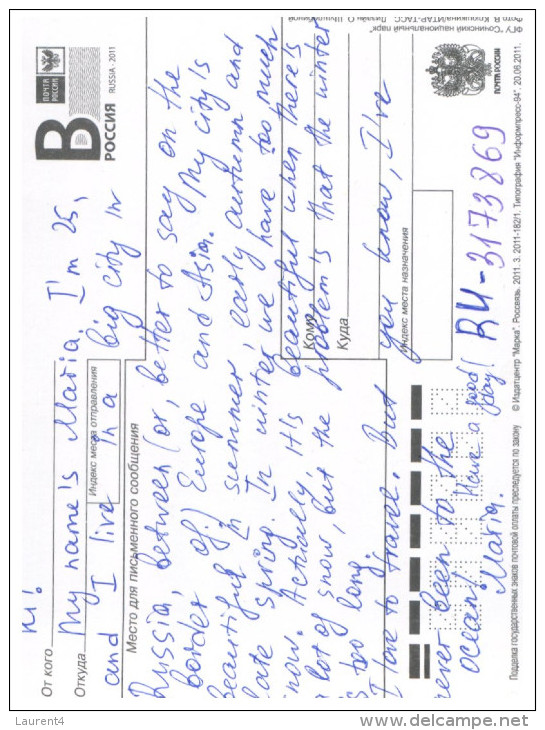 От кого
Hi!
Откуда
My name's Maria. I'm 25,
Индекс места отправления
and I live in a big city in
Место для письменного сообщения
Russia, between (or, better to say on the
border of) Europe and Asia. My city is
beautiful in summer, early autumn and
late spring. In winter we have too much
snow. Actually, it's beautiful when there's
a lot of snow, but the problem's that the winter
is too long.
I love to travel. But you know, I've
never been to the
ocean!
Have a good day!
Maria.
RU-3173869
Кому
Куда
Индекс места назначения
B
ПОЧТА РОССИИ
РОССИЯ RUSSIA - 2011
ПОЧТА РОССИИ
ФГУ "Сочинский национальный парк".
Подделка государственных знаков почтовой оплаты преследуется по закону © Издатцентр "Марка". Россвязь. 2011. 3. 2011-182/1. Типография "Информпресс-94". 20.06.2011.
Laurent4
delcampe.net